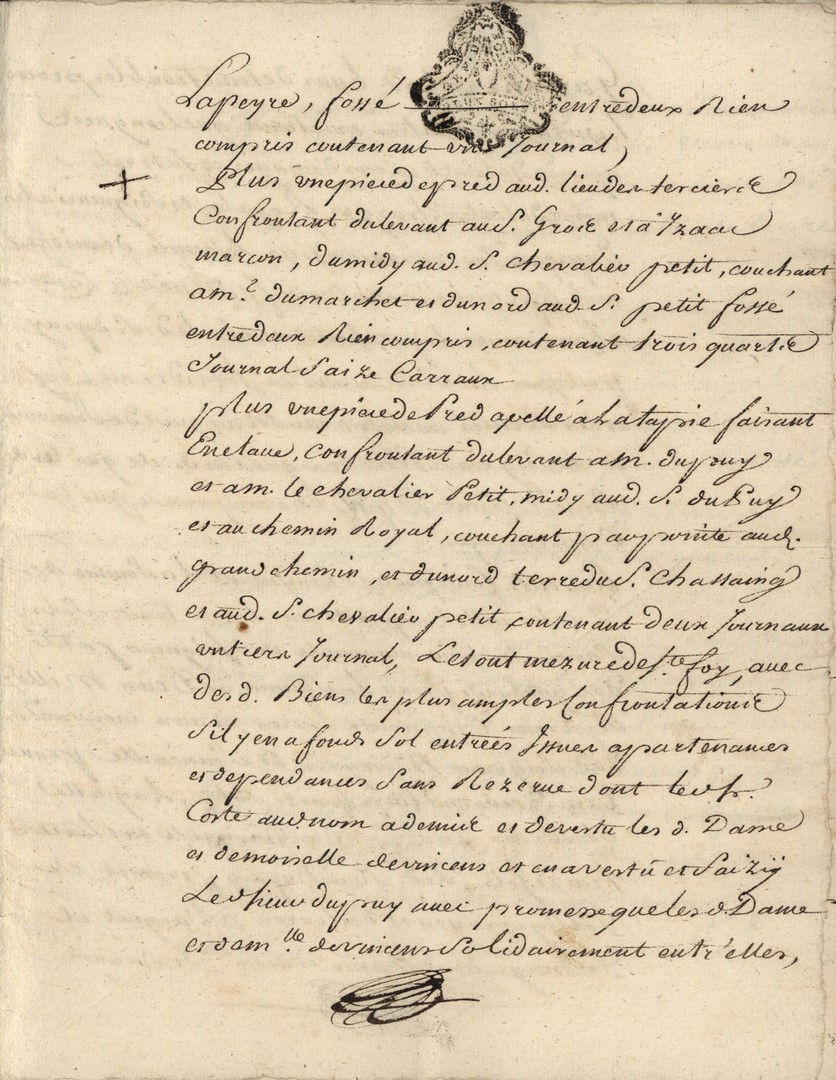 Lapeyre, fossé entredeux Rien
compris contenant un Journal,
Plus une piece de pred aud. lieu des tercierie
Confrontant du levant au S. Groie et a Izaac
marcon, du midy aud. S. chevaliev petit, couchant
a m.r dumarchet et du nord aud. S. petit fossé
entredeux Rien compris, contenant trois quartie
Journal Saize Carraux
plus une piece de Pred apellé a Latapie faisant
Enclave, confrontant du levant a m. dupuy
et a m. le chevalier Petit, midy aud. S. duPuy
et au chemin Royal, couchant par pointe aud.
grand chemin, et du nord terre du S. Chassaing
et aud. S. chevaliev petit contenant deux Journaux
un tiers Journal, Le tout mezure de S.te foy, avec
des d. Biens les plus amples Confrontationie
S'il y en a fonds Sol entrées Issues apartenances
et dependances Sans Rezerve dont led. Sr.
Coste aud. nom a demie et devertu les d. Dame
et demoiselle devincens et en a vertû et Saizÿ
Led. Sieur dupuy avec promesse que les d. Dame
et dem.lle devincens Solidairement entr'elles,